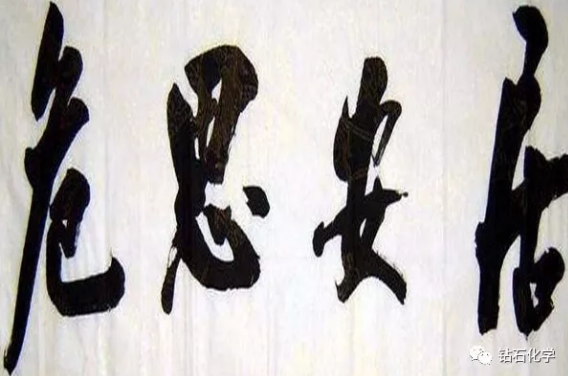 居安思危
钻石化学